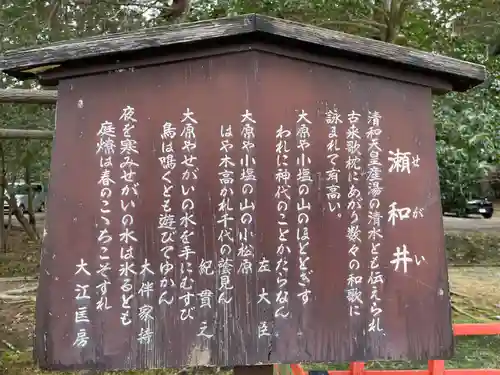 瀬和井
せがい
清和天皇産湯の清水とも伝えられ
古来歌枕にあがり数々の和歌に
詠まれて有高い。
大原や小塩の山のほととぎす
われに神代のことかたらなん
左大臣
大原や小塩の山の小松原
はや木高かれ千代の蔭見ん
紀貫之
大原やせがいの水を手にむすび
鳥は鳴くとも遊びてゆかん
大伴家持
夜を寒みせがいの水は氷るとも
庭燎は春のこゝちこそすれ
大江匡房